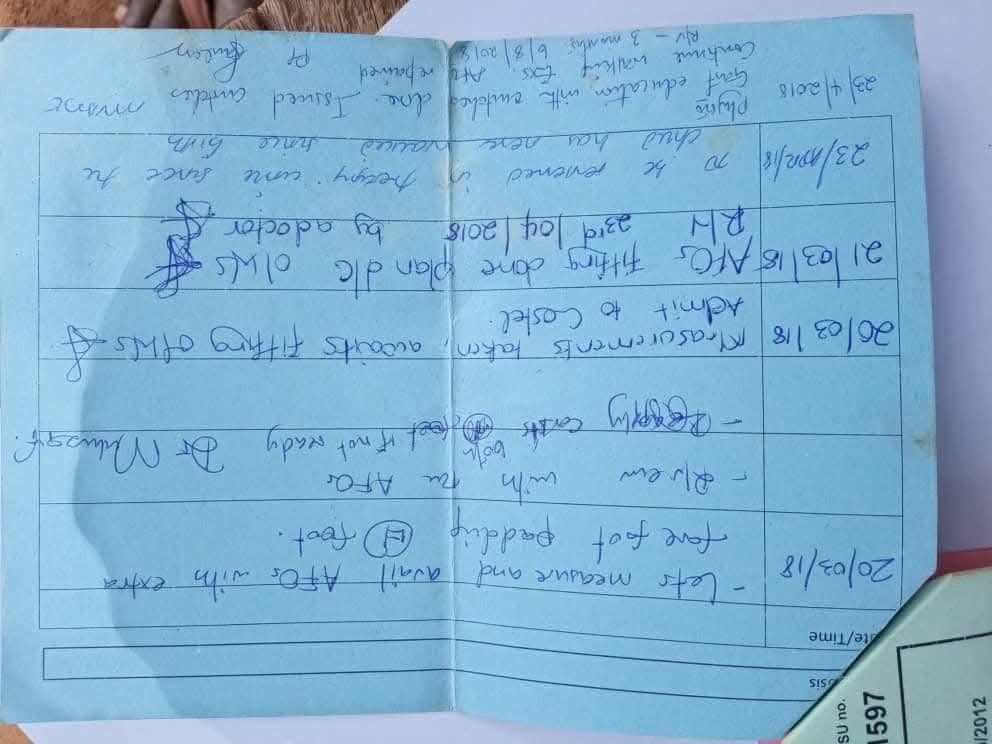 osis
te/Time
20/03/18
- Lets measure and avail AFOs with extra
fore foot padding (H) foot.
- R/view with the AFOs
- Reapply casts both feet if not ready Dr
20/03/18
Measurements taken, awaits fitting
Admit to Castel.
21/03/18
AFOs fitting done plan d/c
R/V 23rd/04/2018 by a doctor
23/Apr/18
To be reviewed in since the
child has never since birth
23/4/2018
Physio
Gait education with crutches done. Issued crutches
Continue walking Exs. AFO repaired
R/V - 3 months 6/8/2018 Pt
SU no.
1597
/2012